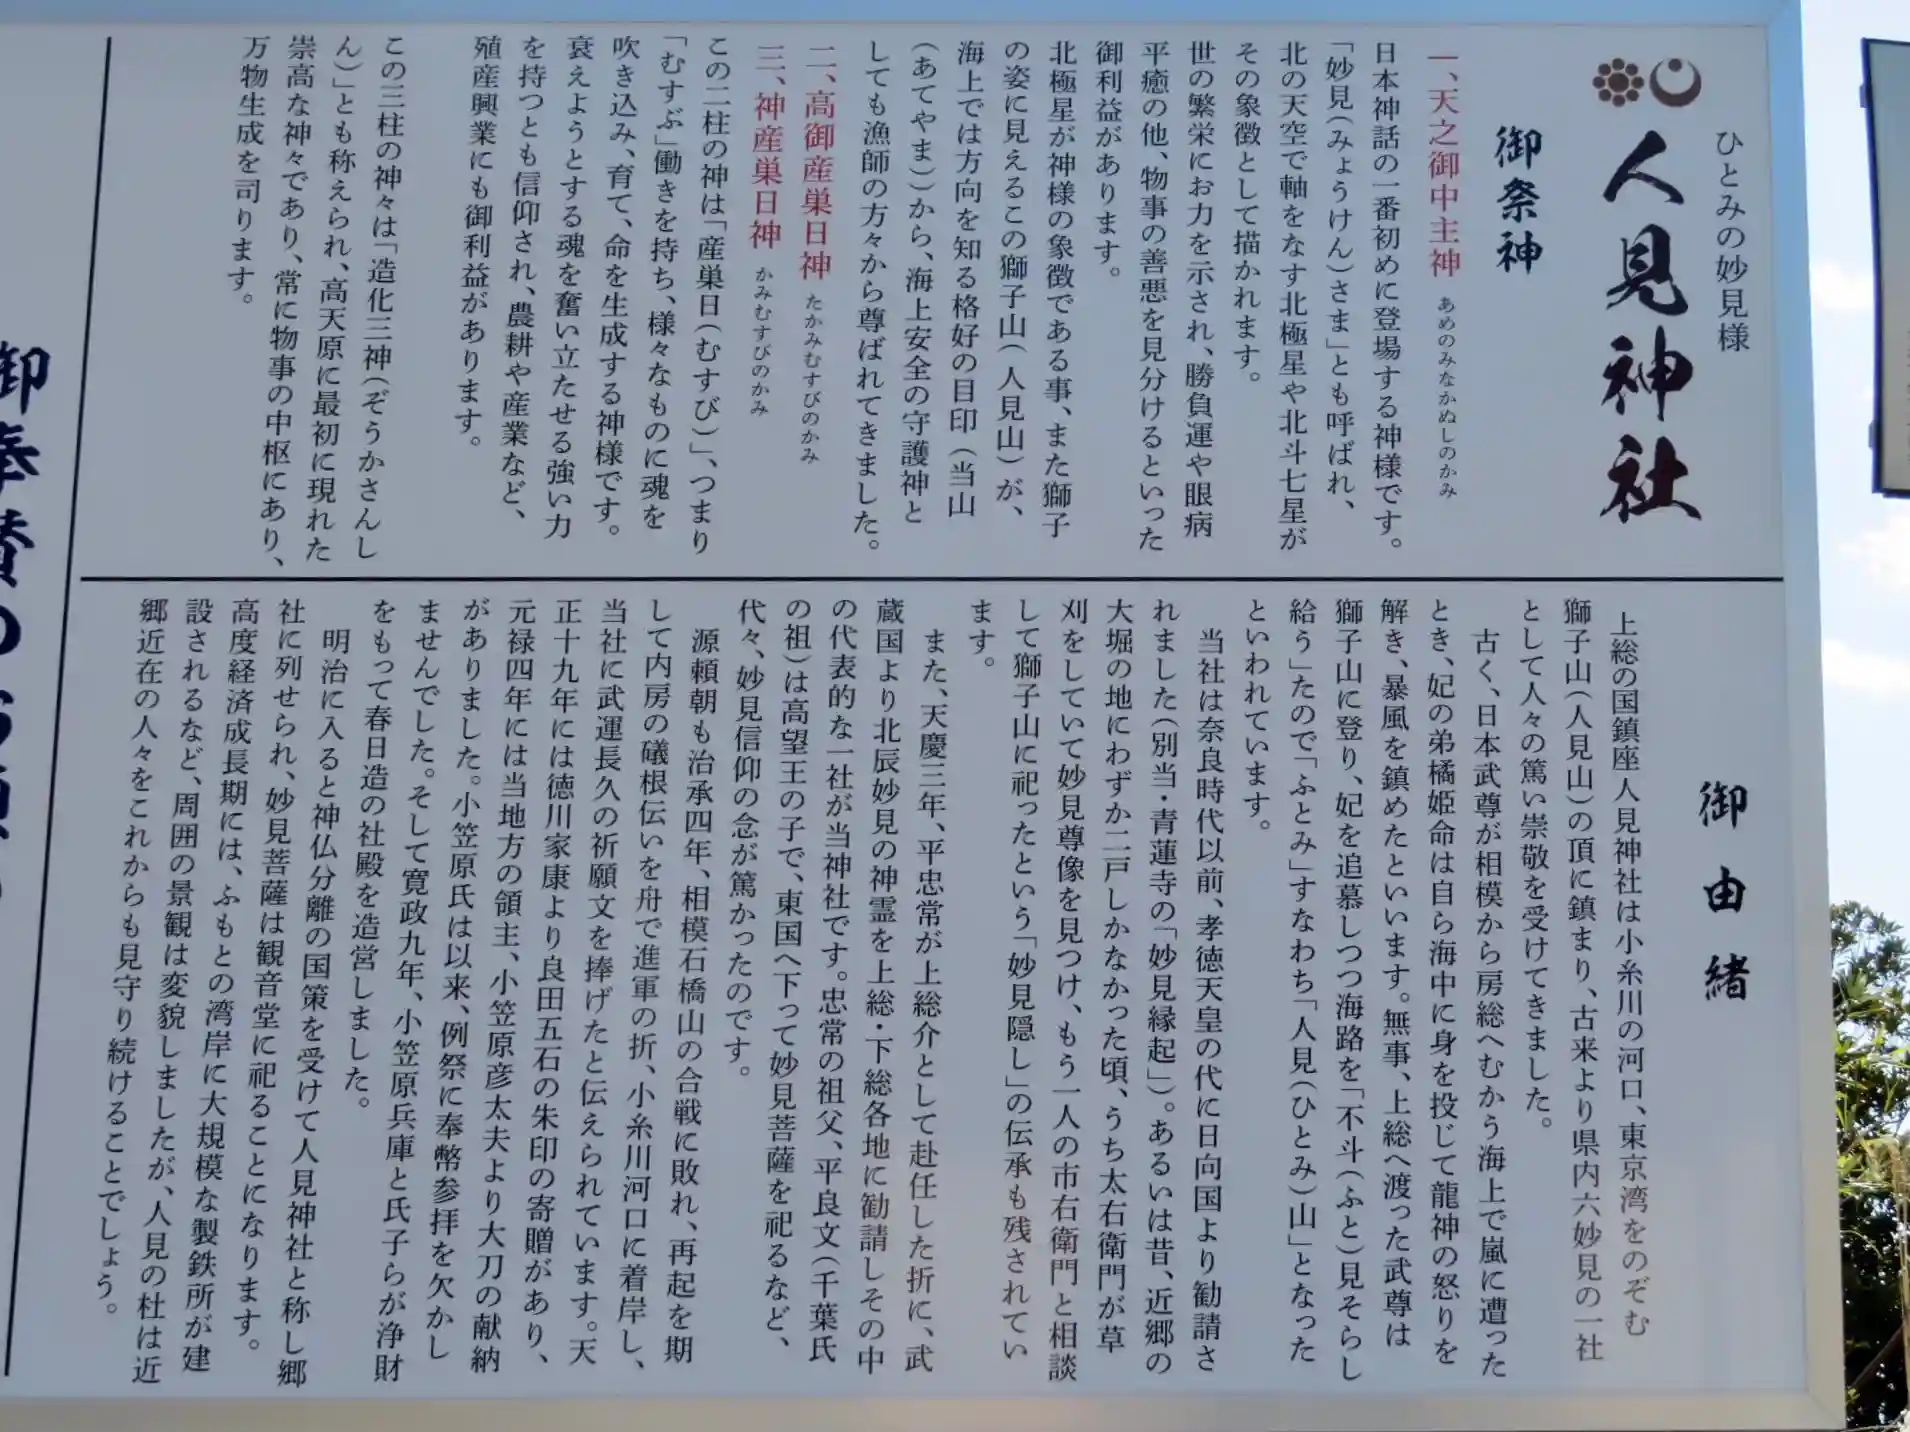 ひとみの妙見様
人見神社
御祭神
一、天之御中主神 あめのみなかぬしのかみ
日本神話の一番初めに登場する神様です。
「妙見(みょうけん)さま」とも呼ばれ、
北の天空で軸をなす北極星や北斗七星が
その象徴として描かれます。
世の繁栄にお力を示され、勝負運や眼病
平癒の他、物事の善悪を見分けるといった
御利益があります。
北極星が神様の象徴である事、また獅子
の姿に見えるこの獅子山(人見山)が、
海上では方向を知る格好の目印(当山
(あてやま))から、海上安全の守護神と
しても漁師の方々から尊ばれてきました。
二、高御産巣日神 たかみむすびのかみ
三、神産巣日神 かみむすびのかみ
この二柱の神は「産巣日(むすび)」、つまり
「むすぶ」働きを持ち、様々なものに魂を
吹き込み、育て、命を生成する神様です。
衰えようとする魂を奮い立たせる強い力
を持つとも信仰され、農耕や産業など、
殖産興業にも御利益があります。
この三柱の神々は「造化三神(ぞうかさんし
ん)」とも称えられ、高天原に最初に現れた
崇高な神々であり、常に物事の中枢にあり、
万物生成を司ります。
御由緒
上総の国鎮座人見神社は小糸川の河口、東京湾をのぞむ
獅子山(人見山)の頂に鎮まり、古来より県内六妙見の一社
として人々の篤い崇敬を受けてきました。
古く、日本武尊が相模から房総へむかう海上で嵐に遭った
とき、妃の弟橘姫命は自ら海中に身を投じて龍神の怒りを
解き、暴風を鎮めたといいます。無事、上総へ渡った武尊は
獅子山に登り、妃を追慕しつつ海路を「不斗(ふと)見そらし
給う」たので「ふとみ」すなわち「人見(ひとみ)山」となった
といわれています。
当社は奈良時代以前、孝徳天皇の代に日向国より勧請さ
れました(別当・青蓮寺の「妙見縁起」)。あるいは昔、近郷の
大堀の地にわずか二戸しかなかった頃、うち太右衛門が草
刈をしていて妙見尊像を見つけ、もう一人の市右衛門と相談
して獅子山に祀ったという「妙見隠し」の伝承も残されてい
ます。
また、天慶三年、平忠常が上総介として赴任した折に、武
蔵国より北辰妙見の神霊を上総・下総各地に勧請しその中
の代表的な一社が当神社です。忠常の祖父、平良文(千葉氏
の祖)は高望王の子で、東国へ下って妙見菩薩を祀るなど、
代々、妙見信仰の念が篤かったのです。
源頼朝も治承四年、相模石橋山の合戦に敗れ、再起を期
して内房の礒根伝いを舟で進軍の折、小糸川河口に着岸し、
当社に武運長久の祈願文を捧げたと伝えられています。天
正十九年には徳川家康より良田五石の朱印の寄贈があり、
元禄四年には当地方の領主、小笠原彦太夫より大刀の献納
がありました。小笠原氏は以来、例祭に奉幣参拝を欠かし
ませんでした。そして寛政九年、小笠原兵庫と氏子らが浄財
をもって春日造の社殿を造営しました。
明治に入ると神仏分離の国策を受けて人見神社と称し郷
社に列せられ、妙見菩薩は観音堂に祀ることになります。
高度経済成長期には、ふもとの湾岸に大規模な製鉄所が建
設されるなど、周囲の景観は変貌しましたが、人見の杜は近
郷近在の人々をこれからも見守り続けることでしょう。
御奉賛のお願い